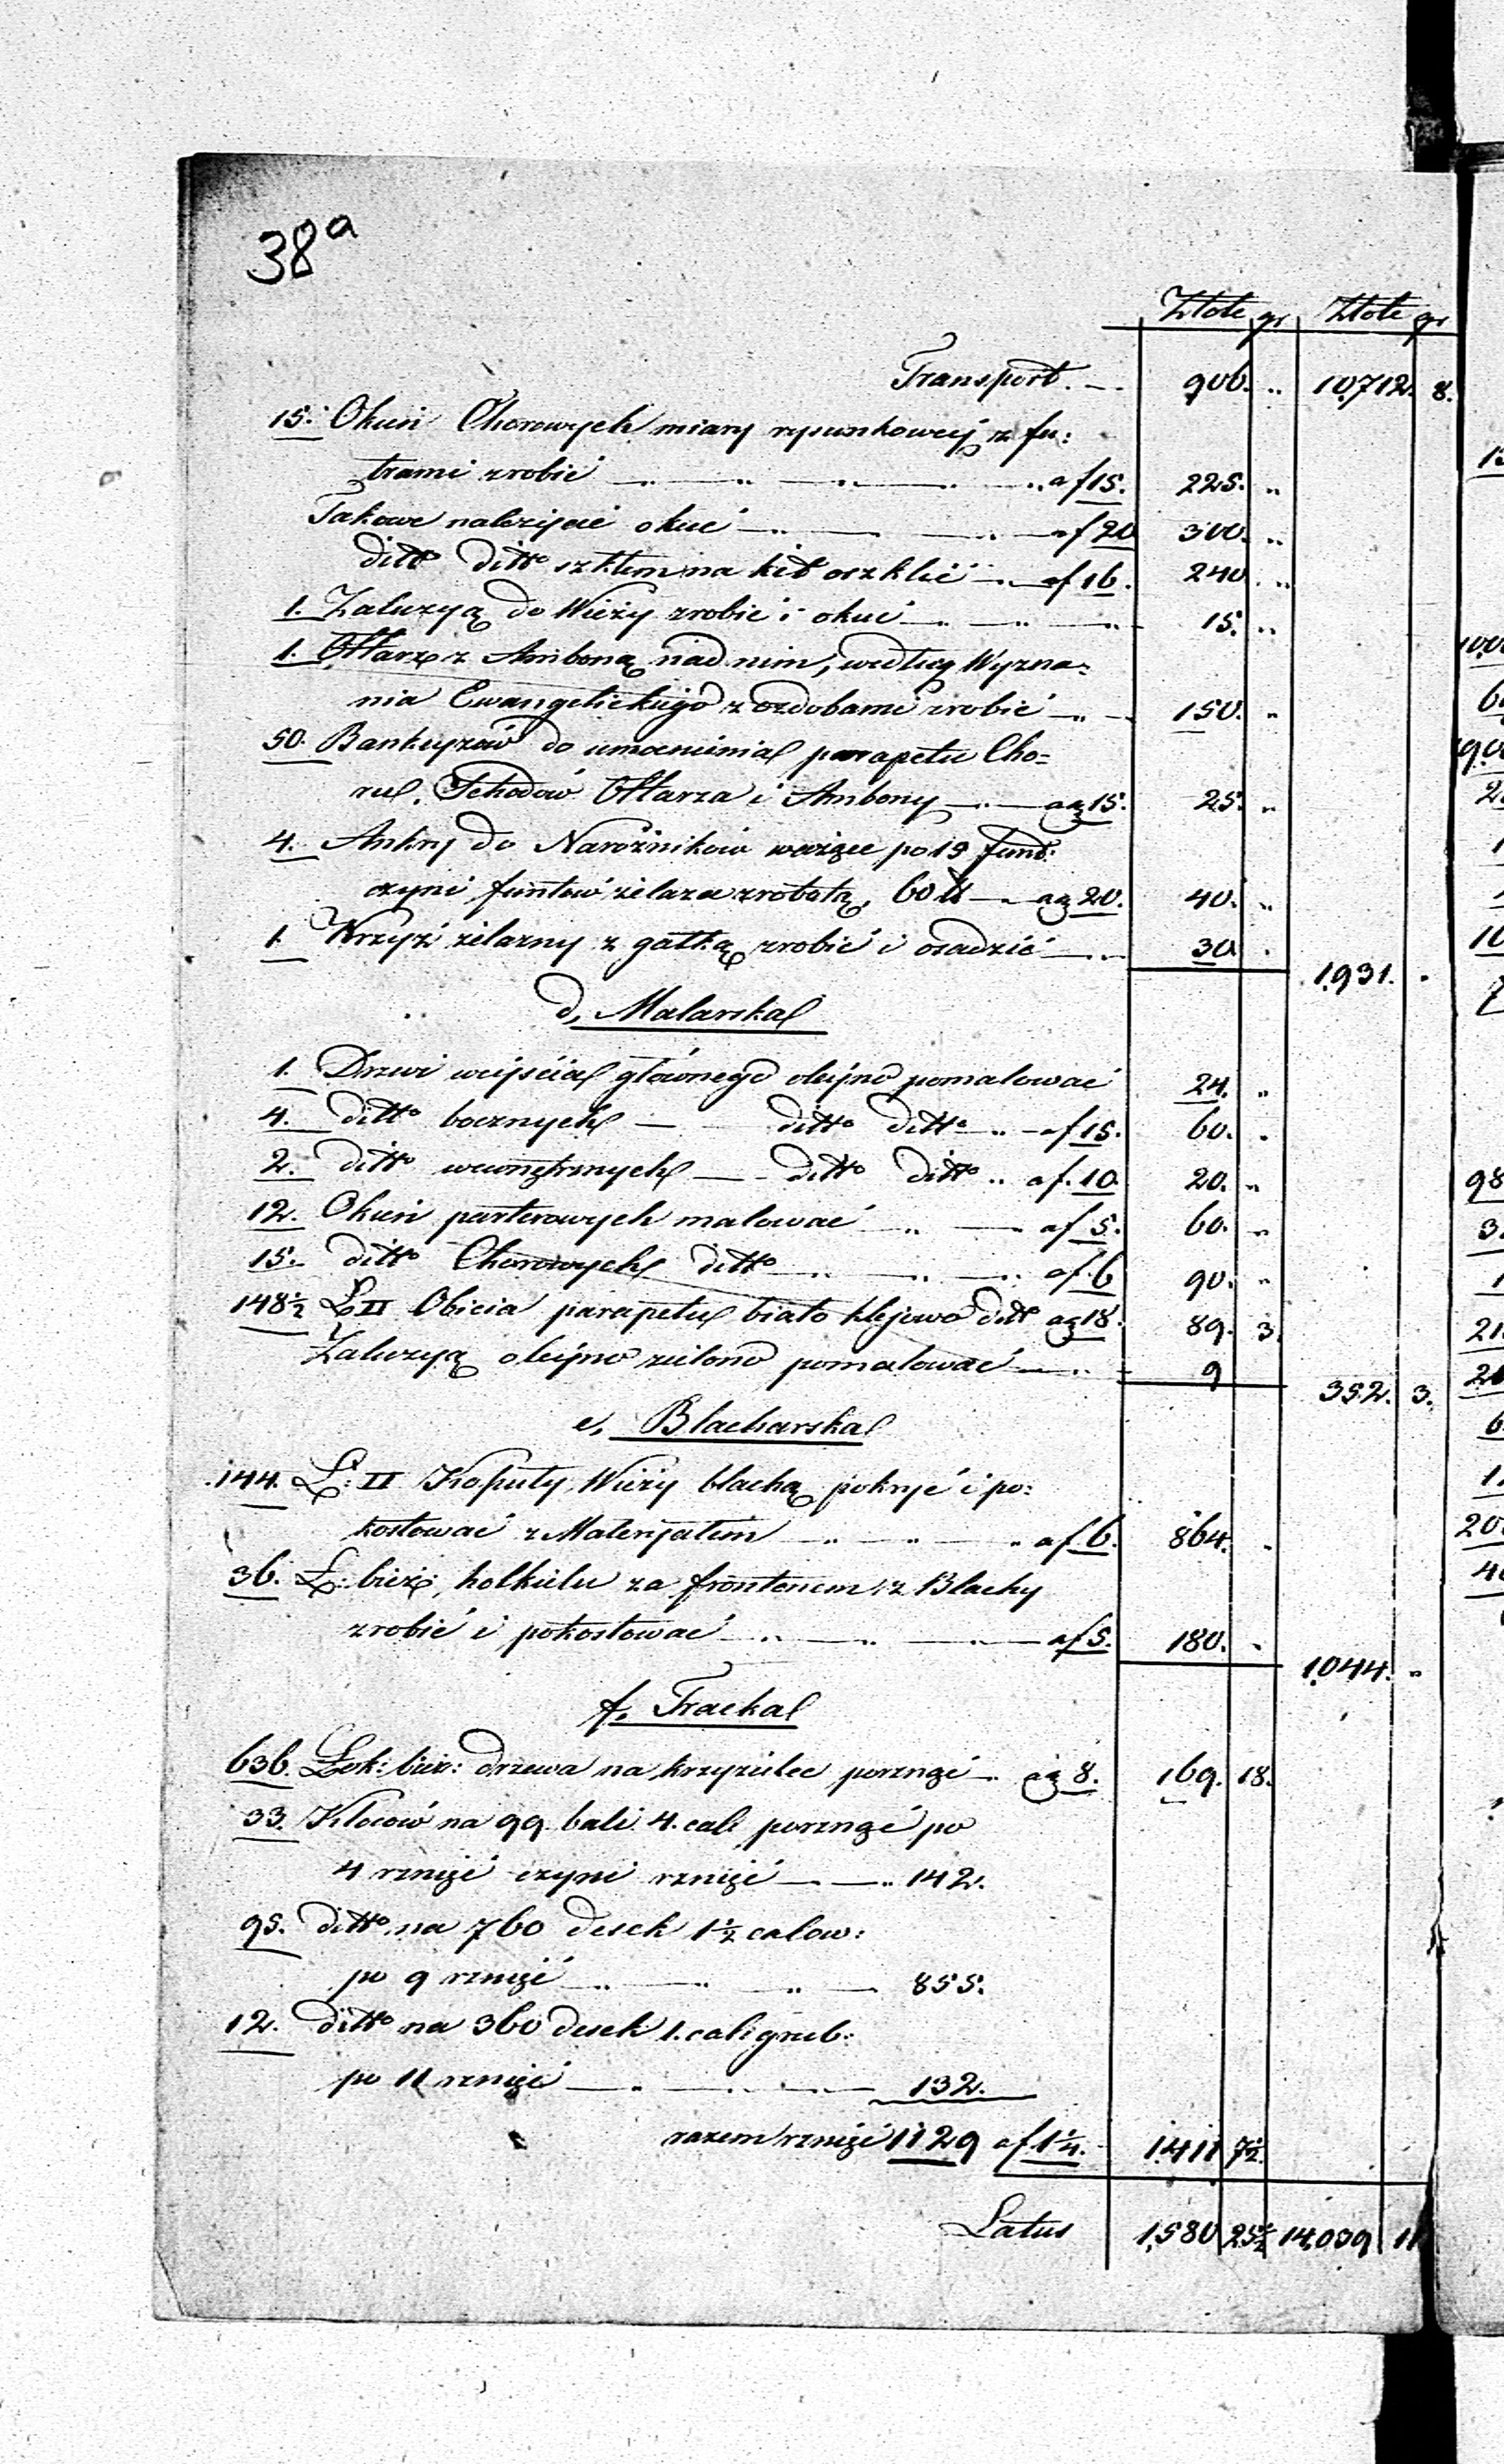 38a
Złote gr Złote gr
Transport. — 906. „ 10,712. 8.
15. Okien Chorowych miary rysunkowej z fu:
trami zrobić — „ — „ — a f 15. 225. „
Takowe należycie okuć — „ — „ — a f 20 300. „
ditto ditto szkłem na kit oszklić — „ — a f 16. 240. „
1. Żaluzyą do Wieży zrobić i okuć — „ — „ — 15. „
1. Ołtarz z Amboną nad nim, według Wyzna:
nia Ewangelickiego z ozdobami zrobić — „ — 150. „
50. Bankyzów do umocnienia parapetu Cho=
ru, Schodów Ołtarza i Ambony — „ — a g 15. 25. „
4. Ankry do Narożników ważące po 15 funt:
czyni funtów żelaza z robotą, 60 ℔ — a g 20. 40. „
1. Krzyż żelazny z gałką zrobić i osadzić — „ 30 .
1,931. „
d, Malarska
1. Drzwi wejścia głównego olejno pomalować 24. „
4. ditto bocznych — ditto ditto „ — a f 15. 60. „
2. ditto wewnętrznych — ditto ditto „ a f. 10. 20. „
12. Okien parterowych malować „ — a f 5. 60. „
15. ditto Chorowych ditto — „ — „ — a f. 6 90. „
148½ Ł II Obicia parapetu biało klejowo ditto a g 18. 89. 3.
Żaluzyą olejno zielono pomalować — „ — 9
352. 3.
e, Blacharska
144. Ł: II Kopuły Wieży blachą pokryć i po:
kostować z Materyałem — „ — „ — „ a f. 6. 864. „
36. Ł: bież: holkielu za frontonem z Blachy
zrobić i pokostować — „ — „ — „ — a f 5. 180. „
1,044. „
f, Tracka
636. Łok: bież: drzewa na krzyżulce porznąć — a g 8. 169. 18.
33. Kloców na 99 bali 4. cali porznąć po
4 rznięć czyni rznięć — — „ 142.
95. ditto na 760 desek 1½ calow:
po 9 rznięć — „ — „ — „ — 855.
12. ditto na 360 desek 1. cali grub:
po 11 rznięć — „ — „ — „ — 132.
razem rznięć 1129 a f 1¼. 1,411 7½.
Latus 1,580 25½ 14,039 11